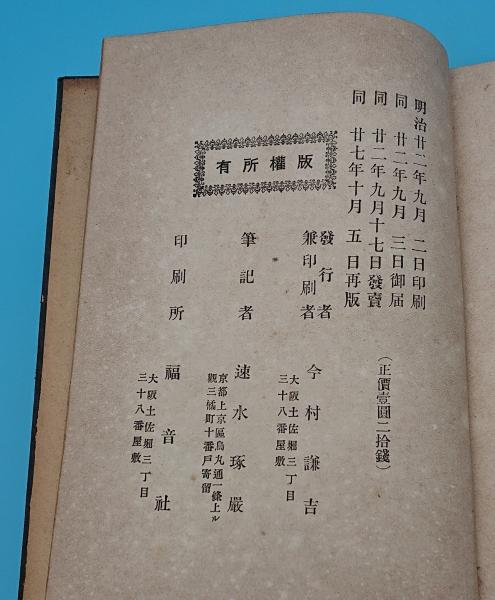 明治廿二年九月 二日印刷
同 廿二年九月 三日御届
同 廿二年九月十七日發賣
同 廿七年十月 五日再版
(正價壹圓二拾錢)
版權所有
發行者
兼印刷者
今村謙吉
大阪土佐堀三丁目
三十八番屋敷
筆記者
速水琢巖
京都上京區烏丸通一條上ル
觀三橘町十番戸寄留
印刷所
福音社
大阪土佐堀三丁目
三十八番屋敷